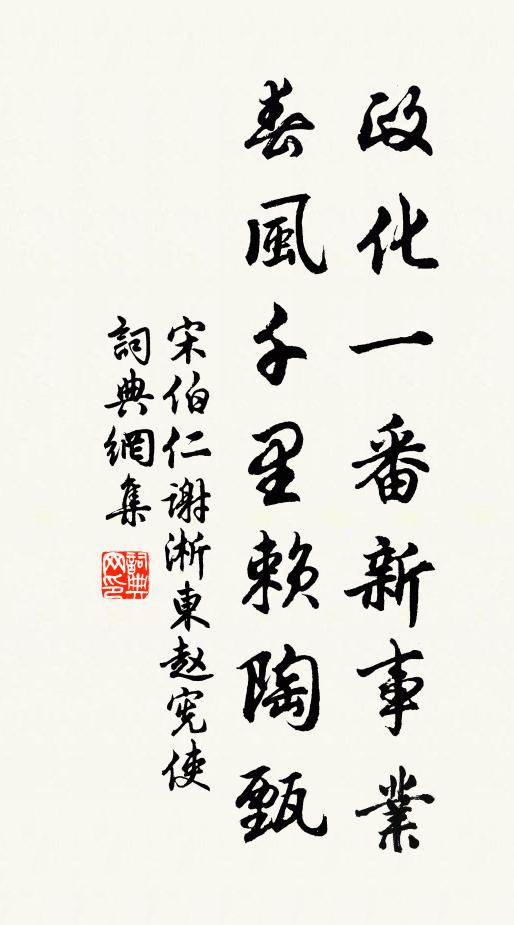 政化一番新事業
春風千里賴陶甄
宋伯仁谢淅東赵宪使
詞典網集
詞典网印